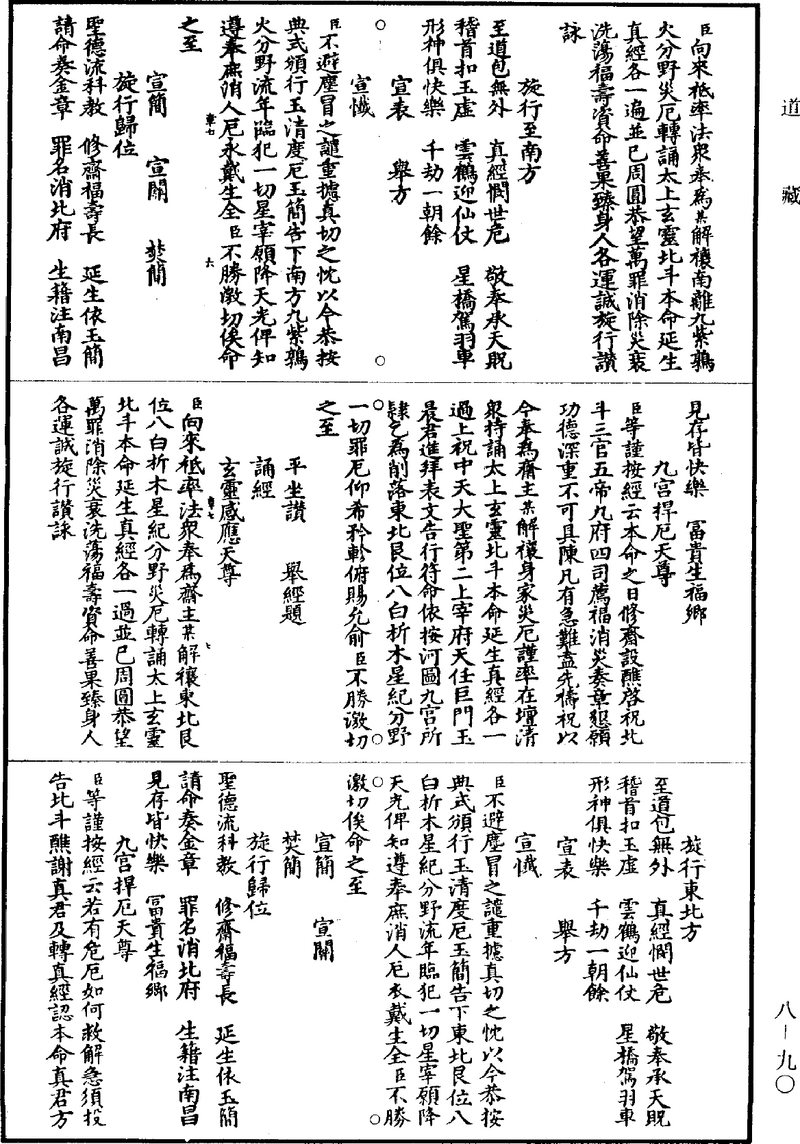 道藏
臣向來祗率法眾奉為某解禳南離九紫鶉
火分野災厄轉誦太上玄靈北斗本命延生
真經各一遍並已周圓恭望萬罪消除災衰
洗蕩福壽資命善果臻身人各運誠旋行讚
詠
旋行至南方
至道包無外　真經憫世危　敬奉承天貺
稽首扣玉虛　雲鶴迎仙仗　星橋駕羽車
形神俱快樂　千劫一朝餘
宣表　舉方
宣懺
臣不避塵冒之譴重攄真切之忱以今恭按
典式頒行玉清度厄玉簡告下南方九紫鶉
火分野流年臨犯一切星宰願降天光俾知
遵奉庶消人厄永戴生全臣不勝激切俟命
章七　六
之至
宣簡　宣關　焚簡
旋行歸位
聖德流科教　修齋福壽長　延生依玉簡
請命奏金章　罪名消北府　生籍注南昌
見存皆快樂　冨貴生福鄉
九宮捍厄天尊
臣等謹按經云本命之日修齋設醮啓祝北
斗三官五帝九府四司薦福消災奏章懇願
功德深重不可具陳凡有急難盍先禱祝以
今奉為齋主某解禳身家災厄謹率在壇清
眾持誦太上玄靈北斗本命延生真經各一
過上祝中天大聖第二上宰府天任巨門玉
晨君進拜表文告行符命依按河圖九宮所
隸乞為削落東北艮位八白析木星紀分野
一切罪厄仰希矜軫俯賜允俞臣不勝激切
之至
平坐讚　舉經題
誦經
玄靈感應天尊
臣向來祗率法眾奉為齋主某解禳東北艮
位八白析木星紀分野災厄轉誦太上玄靈
北斗本命延生真經各一過並已周圓恭望
萬罪消除災衰洗蕩福壽資命善果臻身人
各運誠旋行讚詠
旋行東北方
至道包無外　真經憫世危　敬奉承天貺
稽首扣玉虛　雲鶴迎仙仗　星橋駕羽車
形神俱快樂　千劫一朝餘
宣表　舉方
宣懺
臣不避塵冒之譴重攄真切之忱以今恭按
典式頒行玉清度厄玉簡告下東北艮位八
白析木星紀分野流年臨犯一切星宰願降
天光俾知遵奉庶消人厄永戴生全臣不勝
激切俟命之至
宣簡　宣關
焚簡
旋行歸位
聖德流科教　修齋福壽長　延生依玉簡
請命奏金章　罪名消北府　生籍注南昌
見存皆快樂　冨貴生福鄉
九宮捍厄天尊
臣等謹按經云若有危厄如何救解急須投
告北斗醮謝真君及轉真經認本命真君方
八－九〇